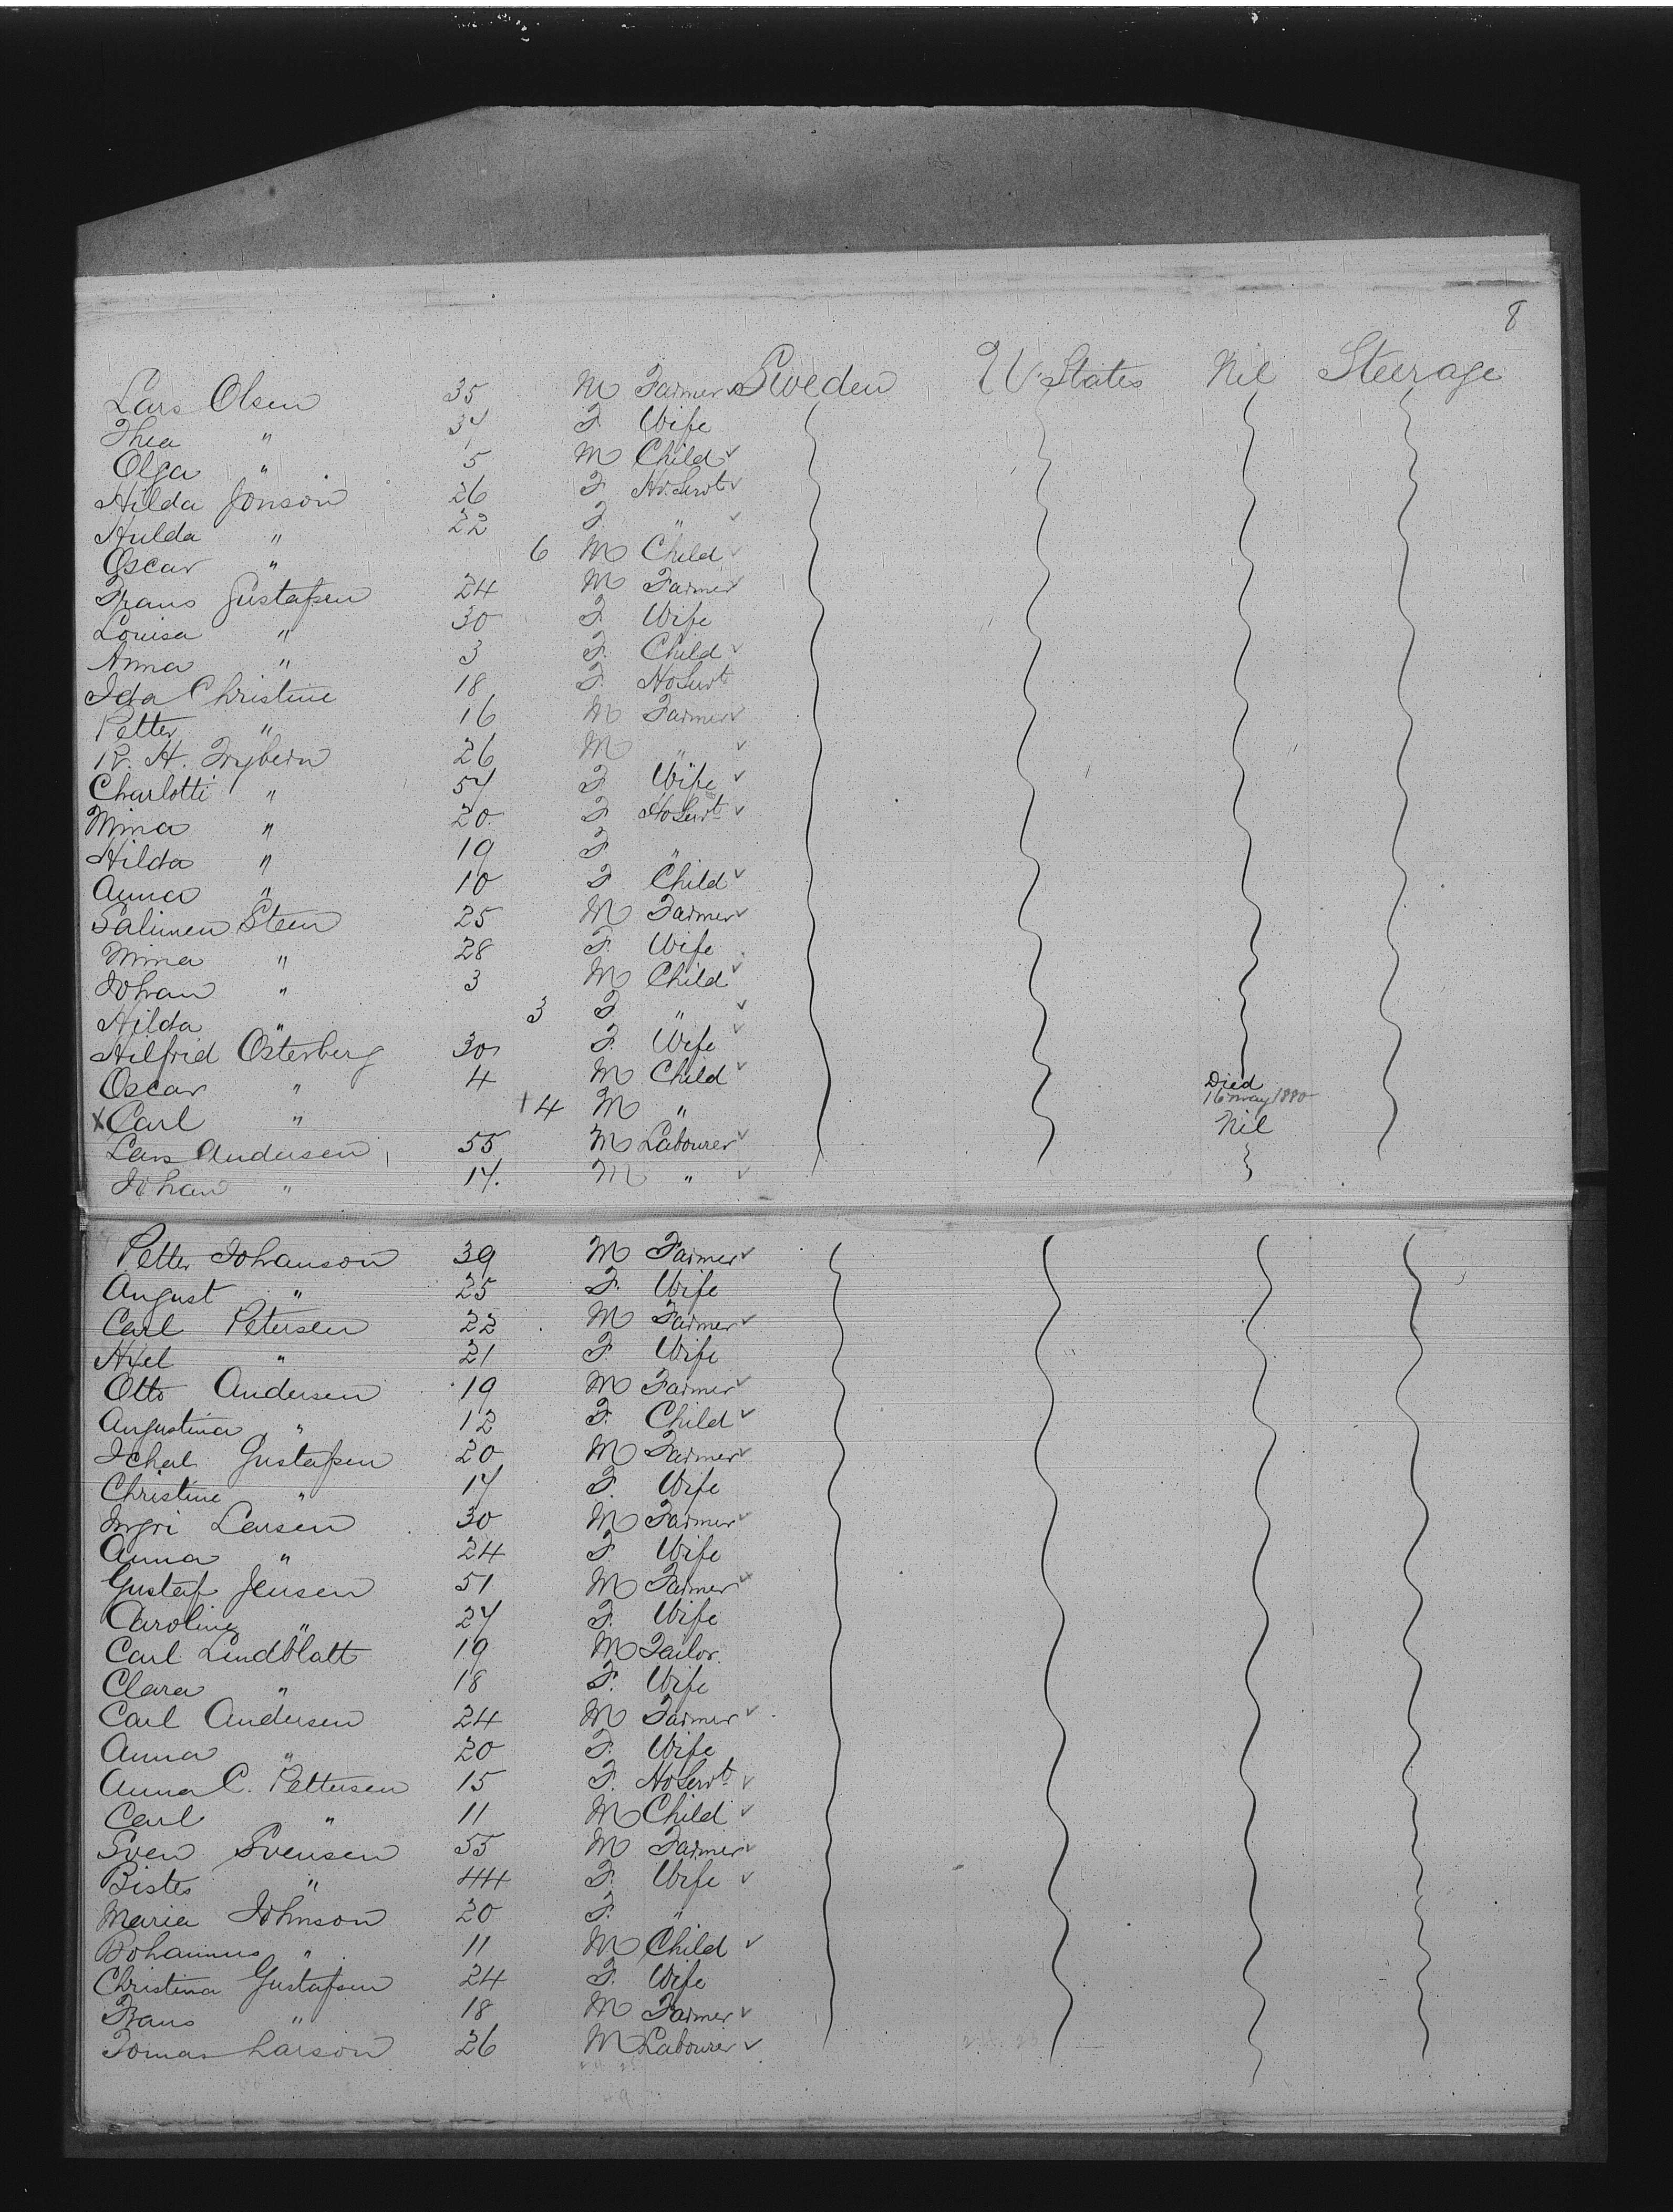 8
Lars Olsen 35 M Farmer Sweden U. States Nil Steerage
Thea " 34 F Wife
Olga " 5 M Child
Hilda Jonson 26 F Ho. Servt
Hulda " 22 F "
Oscar " 6 M Child
Frans Gustafsen 24 M Farmer
Louisa " 30 F Wife
Anna " 3 F. Child
Ida Christine 18 F. Ho Servt
Petter " 16 M Farmer
H. Ingbern 26 M "
Charlotti " 54 F Wife
Mina " 20 F Ho Servt
Hilda " 19 F "
Anna " 10 F Child
Salimen Steen 25 M Farmer
Mina " 28 F. Wife
Johan " 3 M Child
Hilda " 3 F "
Hilfrid Osterberg 30 F. Wife
Oscar " 4 M Child
X Carl " 4 M " Died 16 May 1880
Lars Andersen 55 M Labourer Nil
Johan " 14. M "
Petter Johanson 39 M Farmer
August " 25 F. Wife
Carl Petersen 22 M Farmer
Axel " 21 F Wife
Otto Andersen 19 M Farmer
Augustina " 12 F. Child
Gustafsen 20 M Farmer
Christine " 17 F. Wife
Ingri Larsen 30 M Farmer
Anna " 24 F. Wife
Gustaf Jensen 51 M Farmer
Caroline " 27 F. Wife
Carl Lindblatt 19 M Tailor.
Clara " 18 F. Wife
Carl Andersen 24 M Farmer
Anna " 20 F. Wife
Anna C. Pettersen 15 F. Ho Servt
Carl " 11 M Child
Sven Svensen 55 M Farmer
Bistes " 44 F. Wife
Maria Johnson 20 F. "
Bohannus " 11 M Child
Christina Gustafsen 24 F. Wife
Frans " 18 M Farmer
Tomas Larson 26 M Labourer